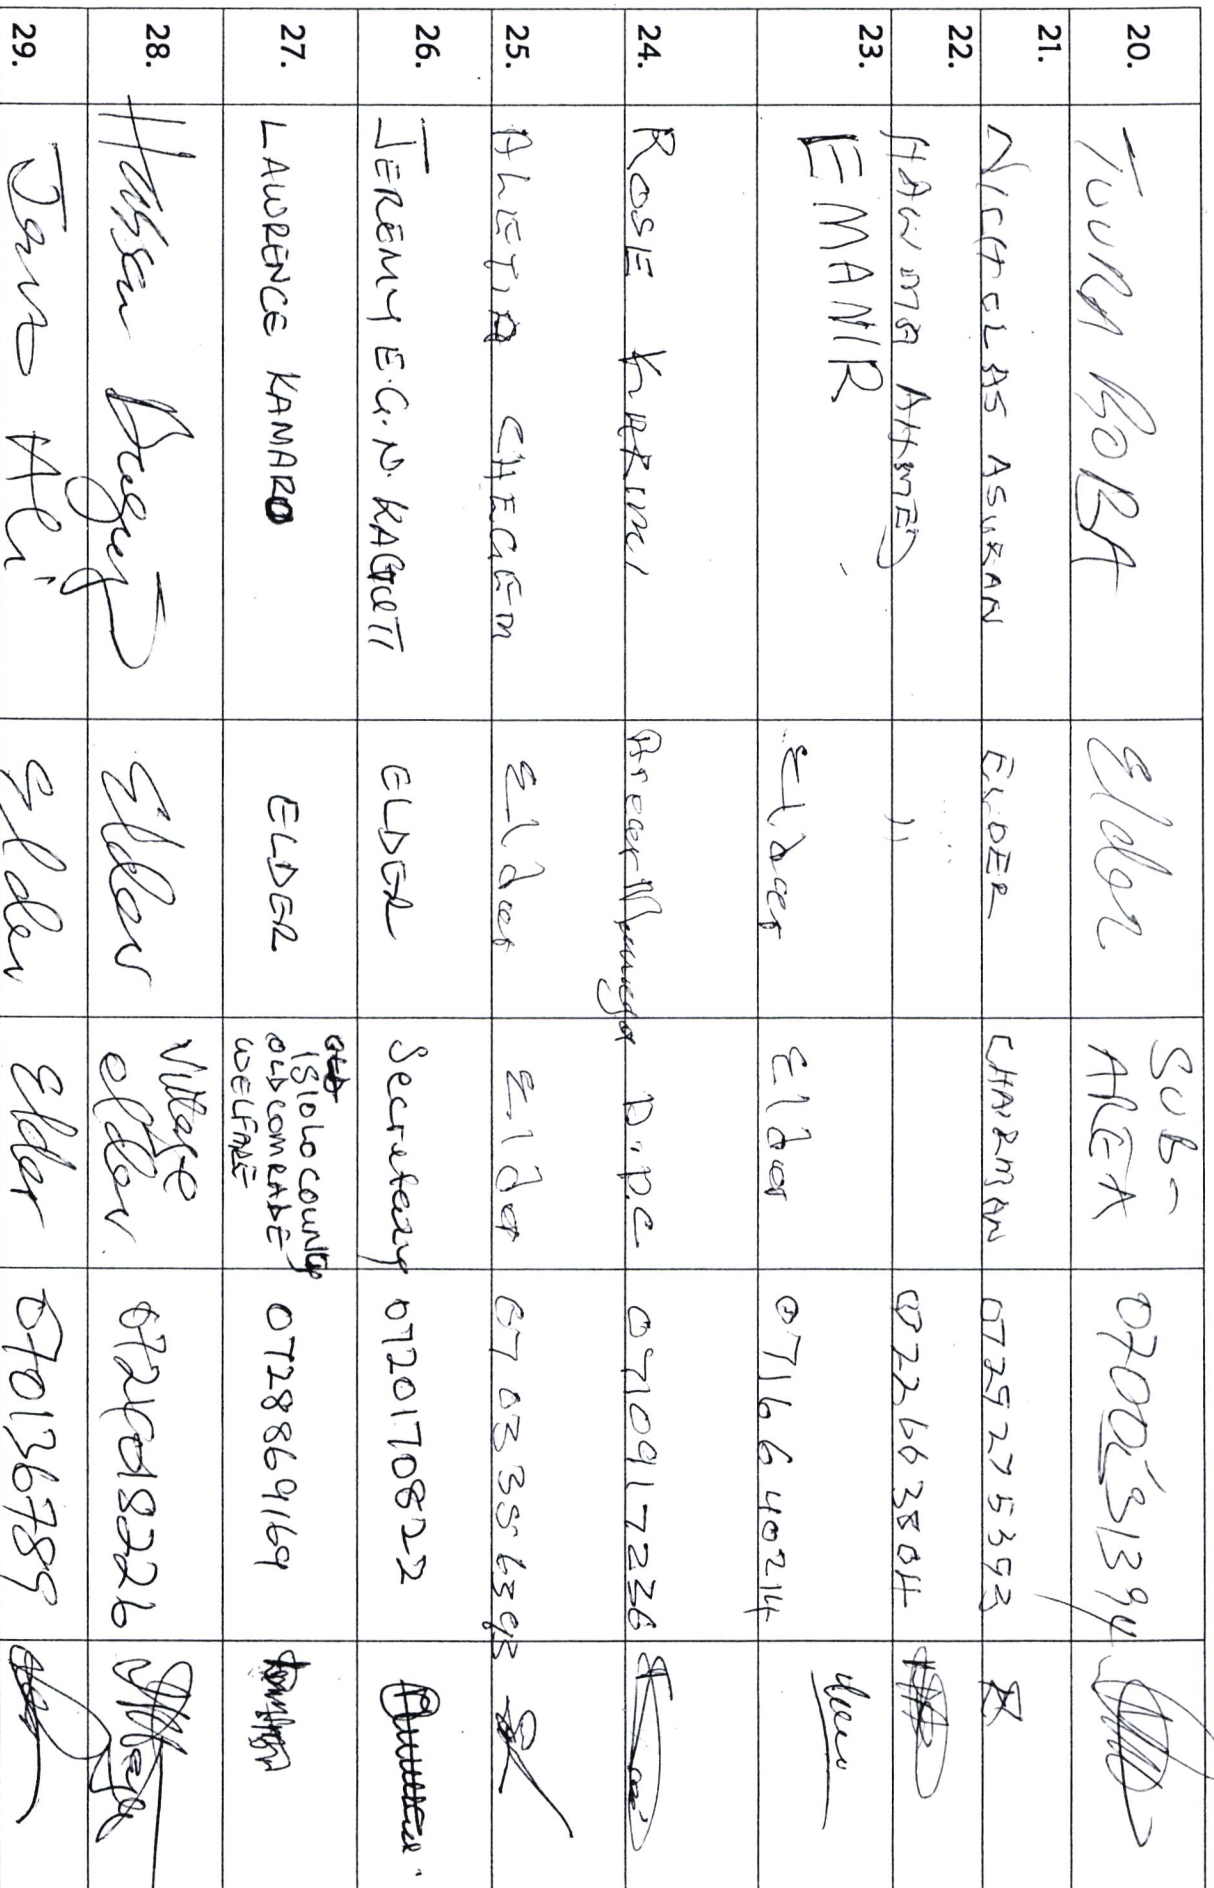 20. TUURA BORA Elder SUB-AREA
21. NICHOLAS ASUKAN ELDER CHAIRMAN 0729275393
22. HAWMA AHMED " 0722663804
23. EMANIR Elder Elder 0716640214
24. ROSE KARIMI D.P.C 0710917236
25. ALETIA CHEGEM Elder Elder
26. JEREMY E.G.N. KAGWTI ELDER Secretary 0720170822
27. LAWRENCE KAMARO ELDER ISIOLO COUNTY OLD COMRADE WELFARE 0728869169
28. Hassan Elder Village elder
29. Ali Elder Elder 0701136789